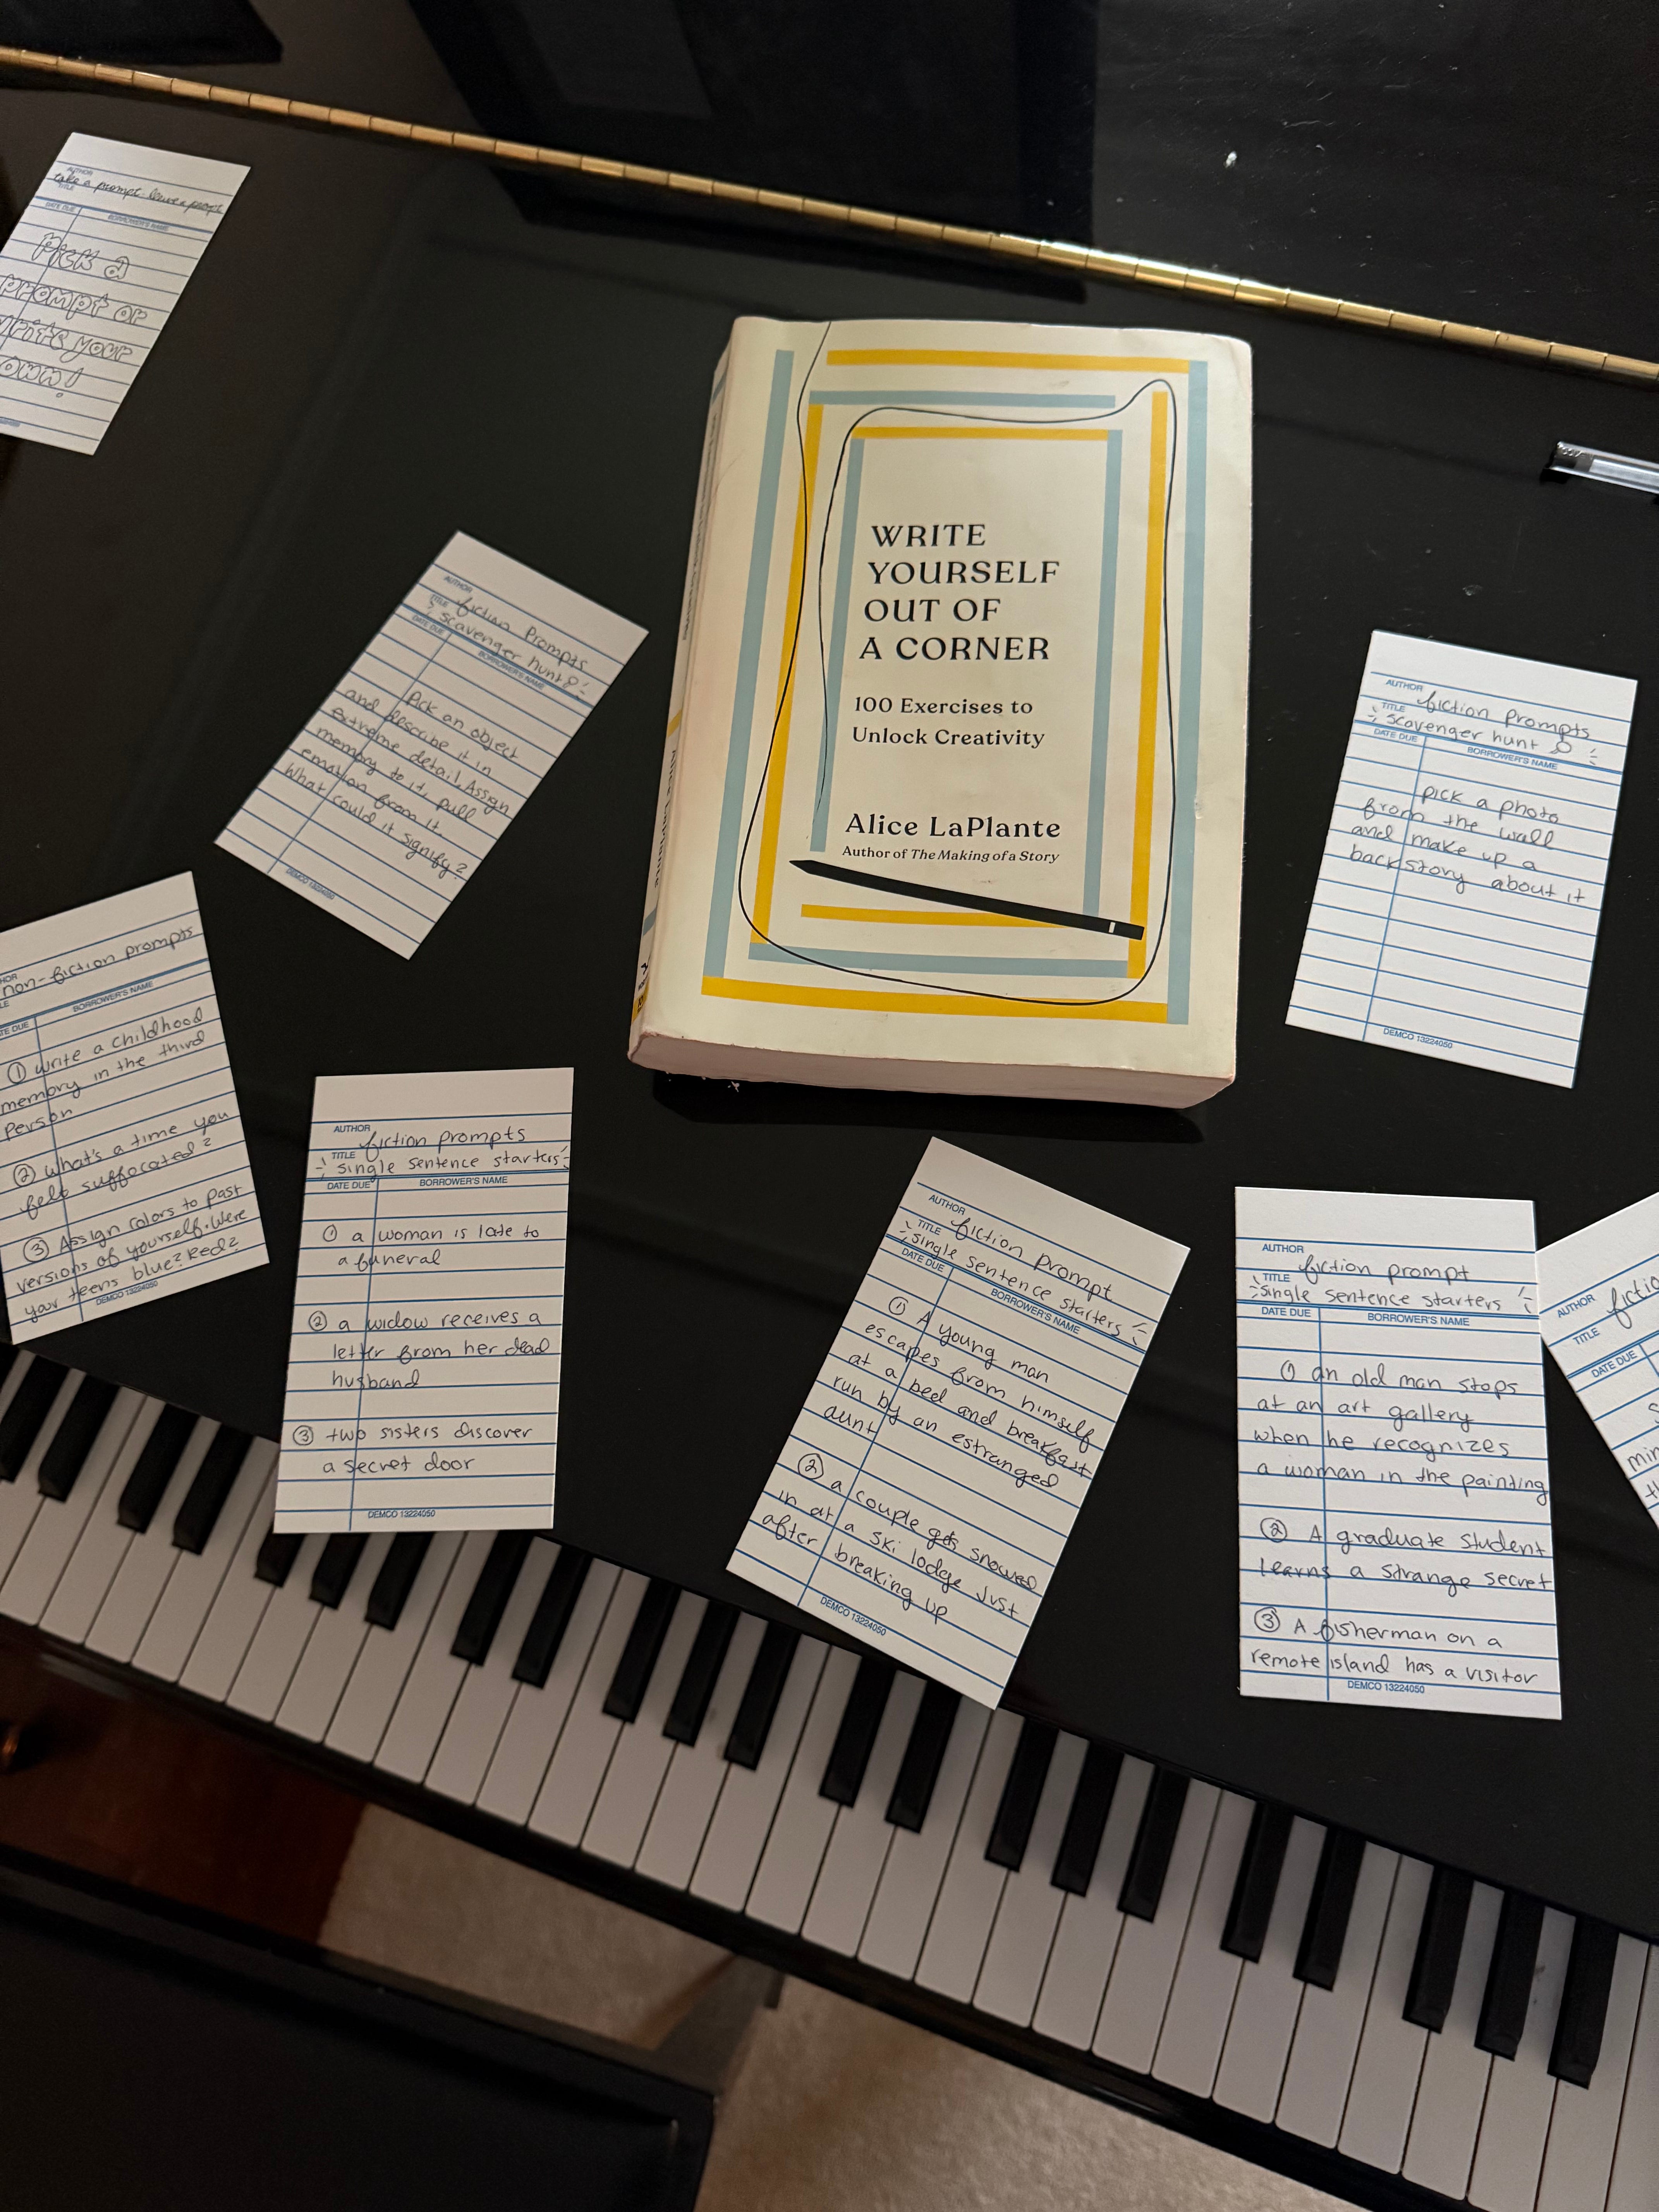 AUTHOR
take a prompt leave a prompt
TITLE
DATE DUE BORROWER'S NAME
Pick a
prompt or
write your
own!
AUTHOR
fiction prompts
TITLE
scavenger hunt
DATE DUE BORROWER'S NAME
Pick an object
and describe it in
extreme detail, Assign
memory to it, pull
emotion from it.
What could it signify?
DEMCO 13224050
WRITE
YOURSELF
OUT OF
A CORNER
100 Exercises to
Unlock Creativity
Alice LaPlante
Author of The Making of a Story
AUTHOR
fiction prompts
TITLE
scavenger hunt
DATE DUE BORROWER'S NAME
pick a photo
from the wall
and make up a
backstory about it
DEMCO 13224050
non-fiction prompts
BORROWER'S NAME
① write a childhood
memory in the third
person
② what's a time you
felt suffocated?
③ Assign colors to past
versions of yourself. Were
your teens blue? Red?
DEMCO 13224050
AUTHOR
fiction prompts
TITLE
single sentence starters
DATE DUE BORROWER'S NAME
① a woman is late to
a funeral
② a widow receives a
letter from her dead
husband
③ two sisters discover
a secret door
DEMCO 13224050
AUTHOR
fiction prompt
TITLE
single sentence starters
DATE DUE BORROWER'S NAME
① A young man
escapes from himself
at a bed and breakfast
run by an estranged
aunt
② a couple gets snowed
in at a ski lodge just
after breaking up
DEMCO 13224050
AUTHOR
fiction prompt
TITLE
single sentence starters
DATE DUE BORROWER'S NAME
① an old man stops
at an art gallery
when he recognizes
a woman in the painting
② A graduate student
learns a strange secret
③ A fisherman on a
remote island has a visitor
DEMCO 13224050
AUTHOR
TITLE
DATE DUE